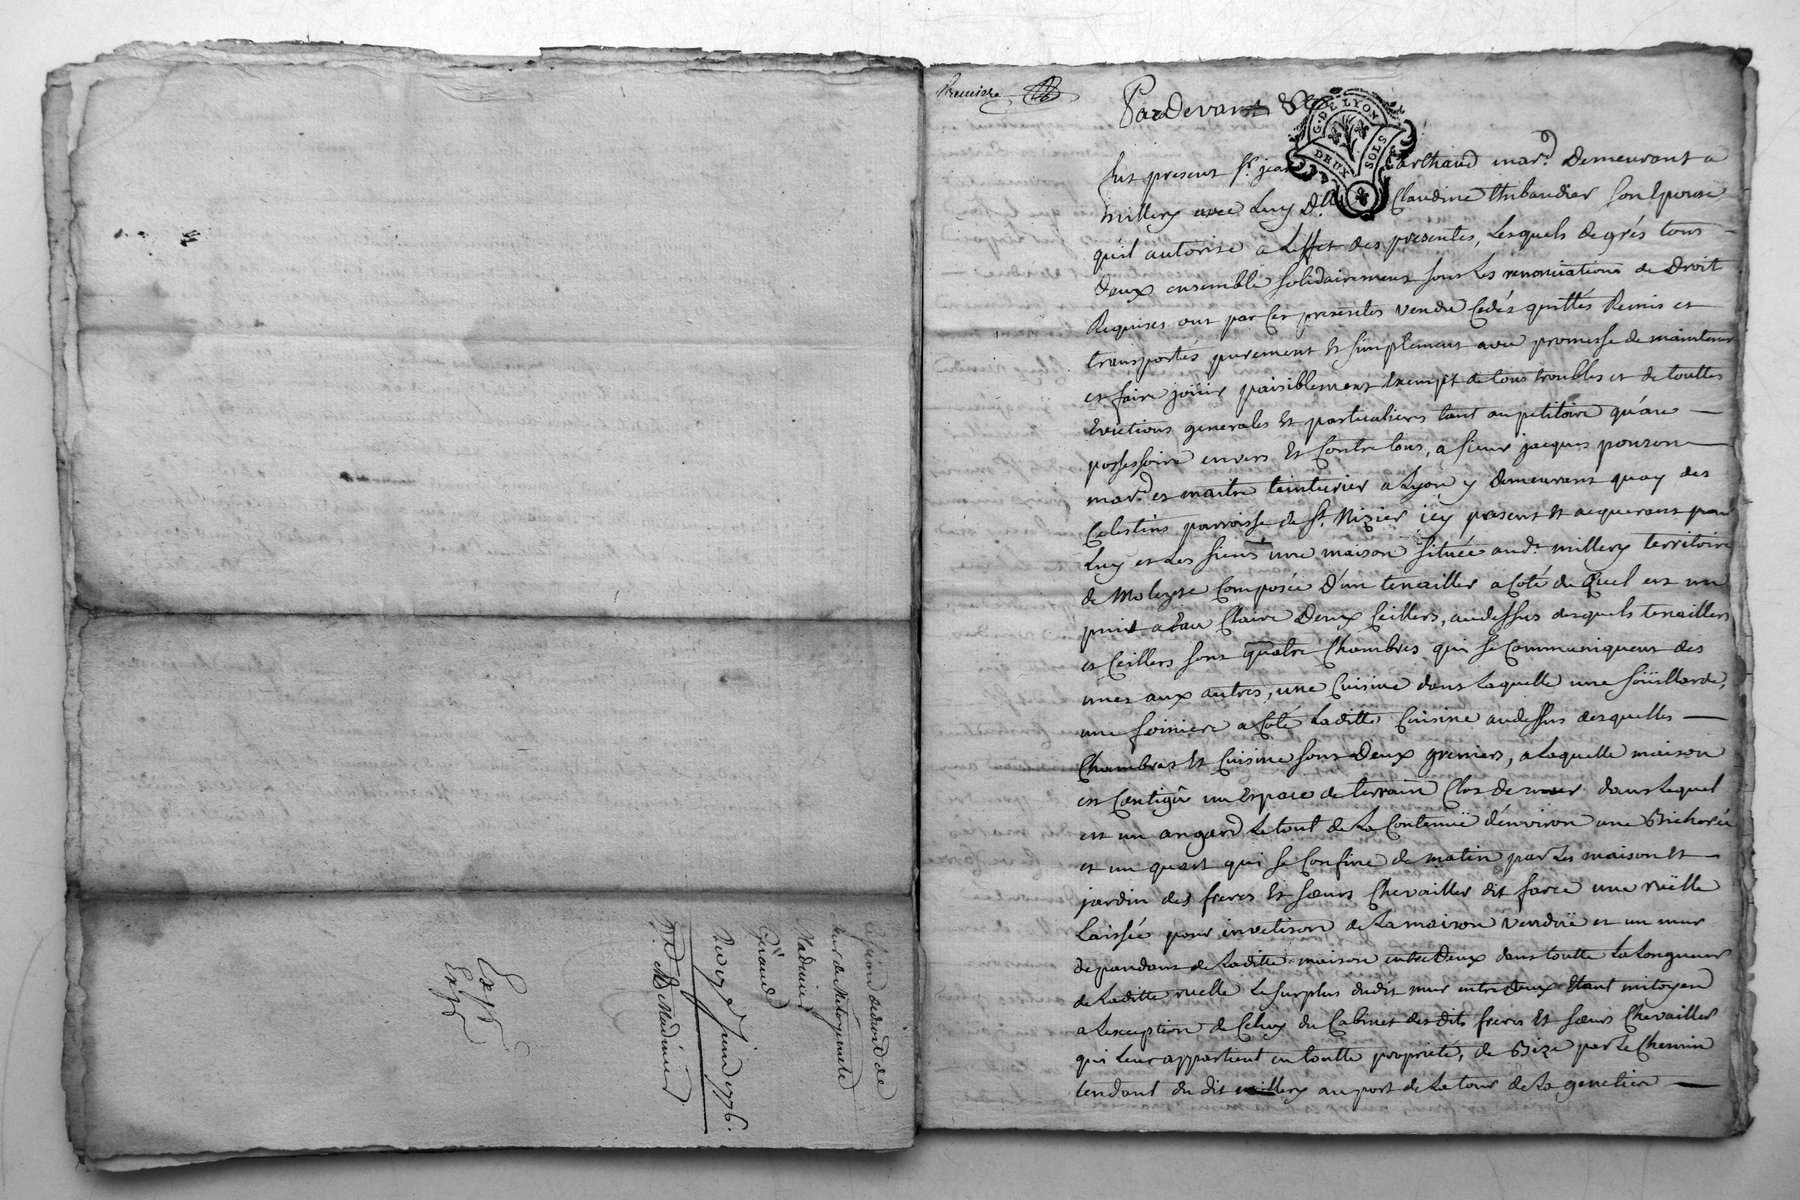 Cession de droit de
mur de Mitoyenneté
Madinier
Giraud
Du 19e Juin 1776.
Me Madinier
Exp
Exp
Premiere
Pardevant
G. DE LYON
DEUX SOLS
fut present Sr. jean archaud mard. Demeurant a
millery avec Luy Dlle Claudine thibaudier son Epouse
quil autorise a Leffet des presentes, Lesquels de grés tous
deux ensemble solidairement sous Les renonciations de Droit
Requises ont par Ces presentes vendu Cedés quittés Remis et
transportés purement et simplement avec promesse de maintenir
et faire joüir paisiblement Exempt de tous troubles et de touttes
Evictions generales et particulieres tant au petitoire qu'au
possessoire envers et Contre tous, a sieur jacques ponson
mard. et maitre teinturier a Lyon y demeurant quay des
Celestins parroisse de St. Nizier icy present et acquerant pour
Luy et Les siens une maison située aud. millery territoire
de Moleyse Composée d'un tenailler a Coté du quel est un
puit a Eau Claire Deux Ceillers, audessus desquels tenaillers
et Ceillers sont quatre Chambres qui se Communiquent des
unes aux autres, une Cuisine dans Laquelle une soüillarde,
une foiniere a Coté Laditte Cuisine audessus desquelles
Chambres et Cuisine sont Deux greniers, a Laquelle maison
est Contigu un Espace de terrain Clos de mur dans Lequel
est un angard Le tout de La Contenuë d'environ une Bicherée
et un quart qui se Confine de matin par Les maison et
jardin des freres et sœurs Chevailler dit farce une ruëlle
Laissée pour invetison de La maison venduë et un mur
dependant de Laditte maison entre Deux dans toutte La Longueur
de Laditte ruelle Le surplus dudit mur entre deux Etant mitoyen
a Lexception de Celuy du Cabinet des dits freres et sœurs Chevailler
qui Leur appartient en toutte propriété, de Bize par Le Chemin
tendant du dit millery au port de La tour de La genetiere